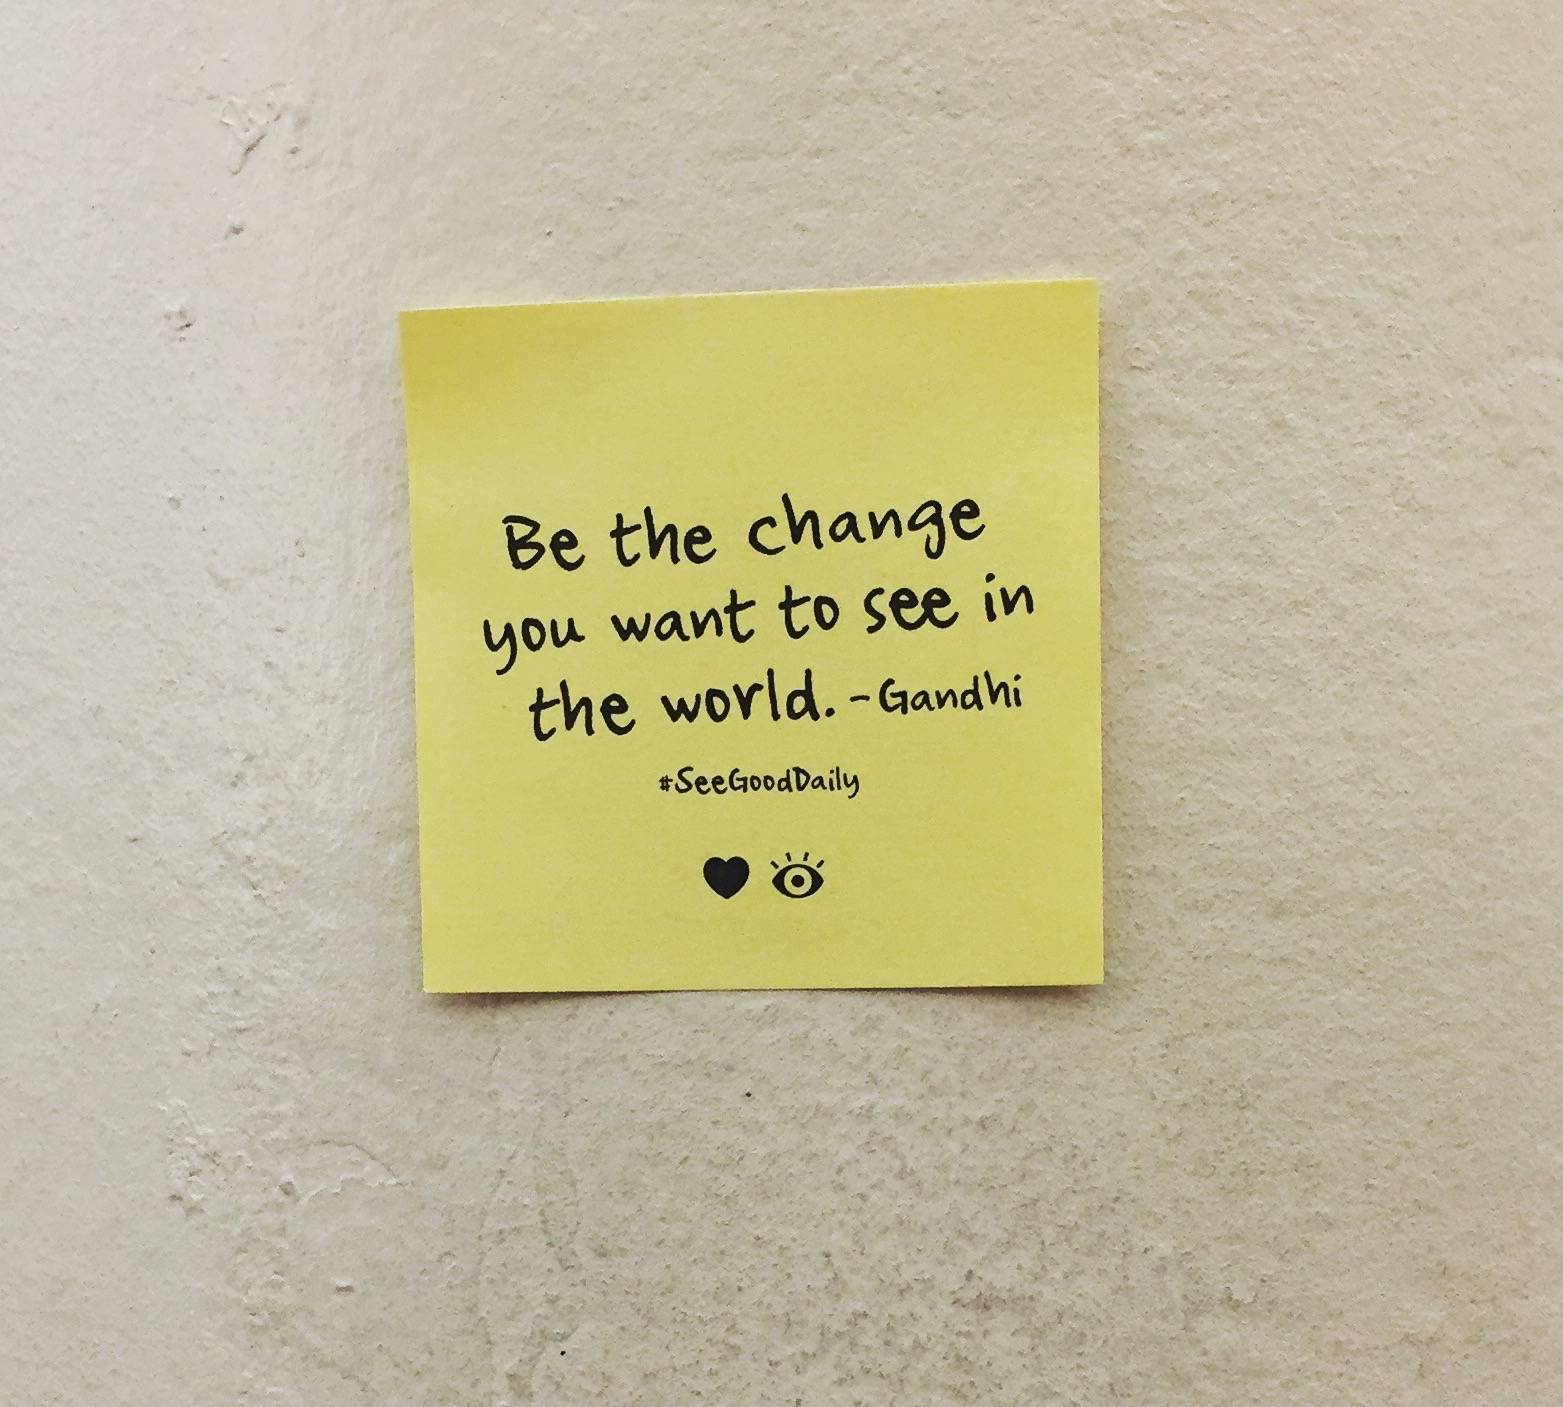 Be the change
you want to see in
the world. -Gandhi
#SeeGoodDaily